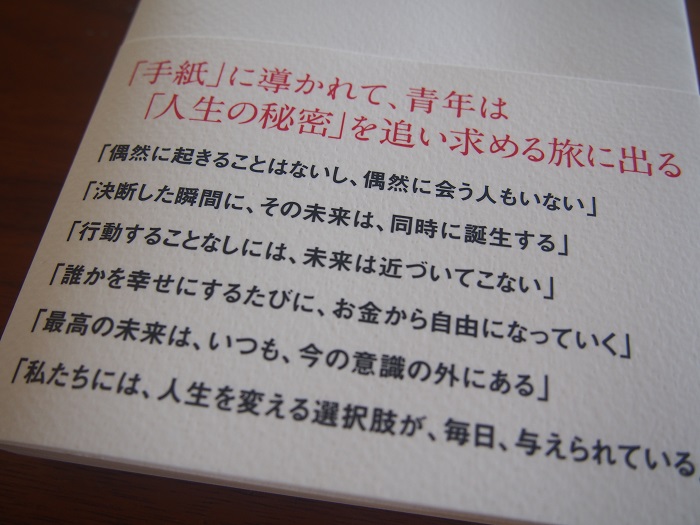 「手紙」に導かれて、青年は
「人生の秘密」を追い求める旅に出る
「偶然に起きることはないし、偶然に会う人もいない」
「決断した瞬間に、その未来は、同時に誕生する」
「行動することなしには、未来は近づいてこない」
「誰かを幸せにするたびに、お金から自由になっていく」
「最高の未来は、いつも、今の意識の外にある」
「私たちには、人生を変える選択肢が、毎日、与えられている